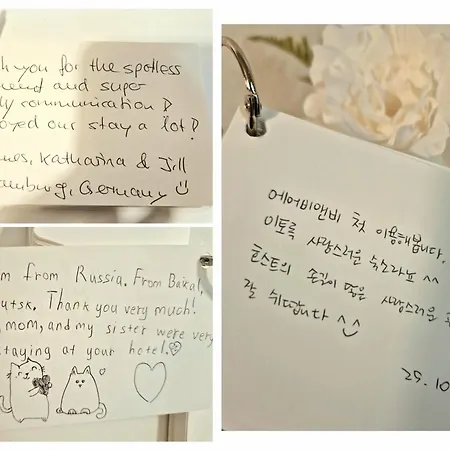 you for the spotless
and super
communication!
our stay a lot!
Katharina & Jill
Germany
from Russia. From Baikal,
Thank you very much!
mom, and my sister were very
staying at your hotel.
에어비앤비 첫 이용해봅니다.
이토록 사랑스러운 숙소라뇨 ^^
호스트의 손길이 닿은 사랑스러운
잘 쉬다갑니다 ^^
25. 10